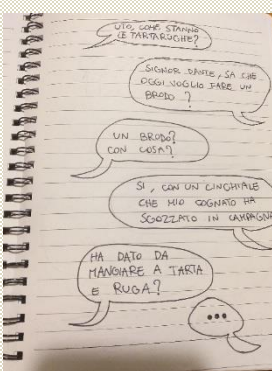 UTO, COME STANNO
LE TARTARUGHE?
SIGNOR DANTE, SA CHE
OGGI VOGLIO FARE UN
BRODO ..?
UN BRODO?
CON COSA?
SI, CON UN CINGHIALE
CHE MIO COGNATO HA
SGOZZATO IN CAMPAGNA
HA DATO DA
MANGIARE A TARTA
E RUGA?
...